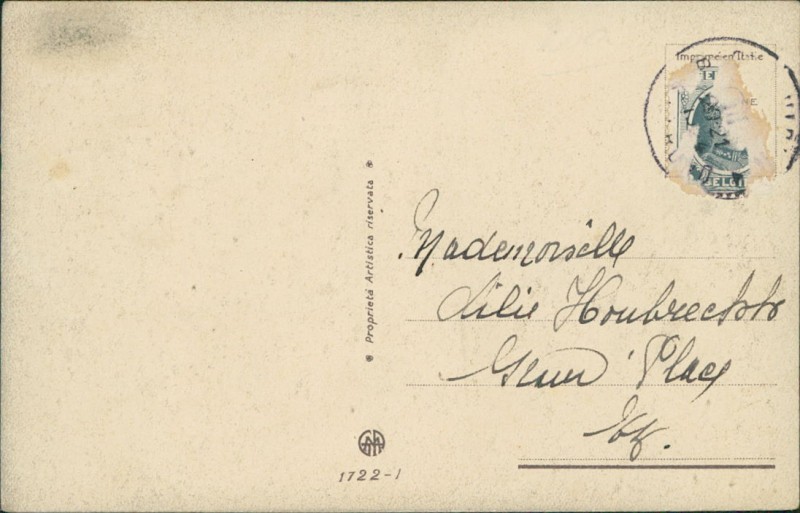 Imprimé en Italie
BELGI
Proprietà Artistica riservata
Mademoiselle
Lilie Houbrechts
Place
1722-I